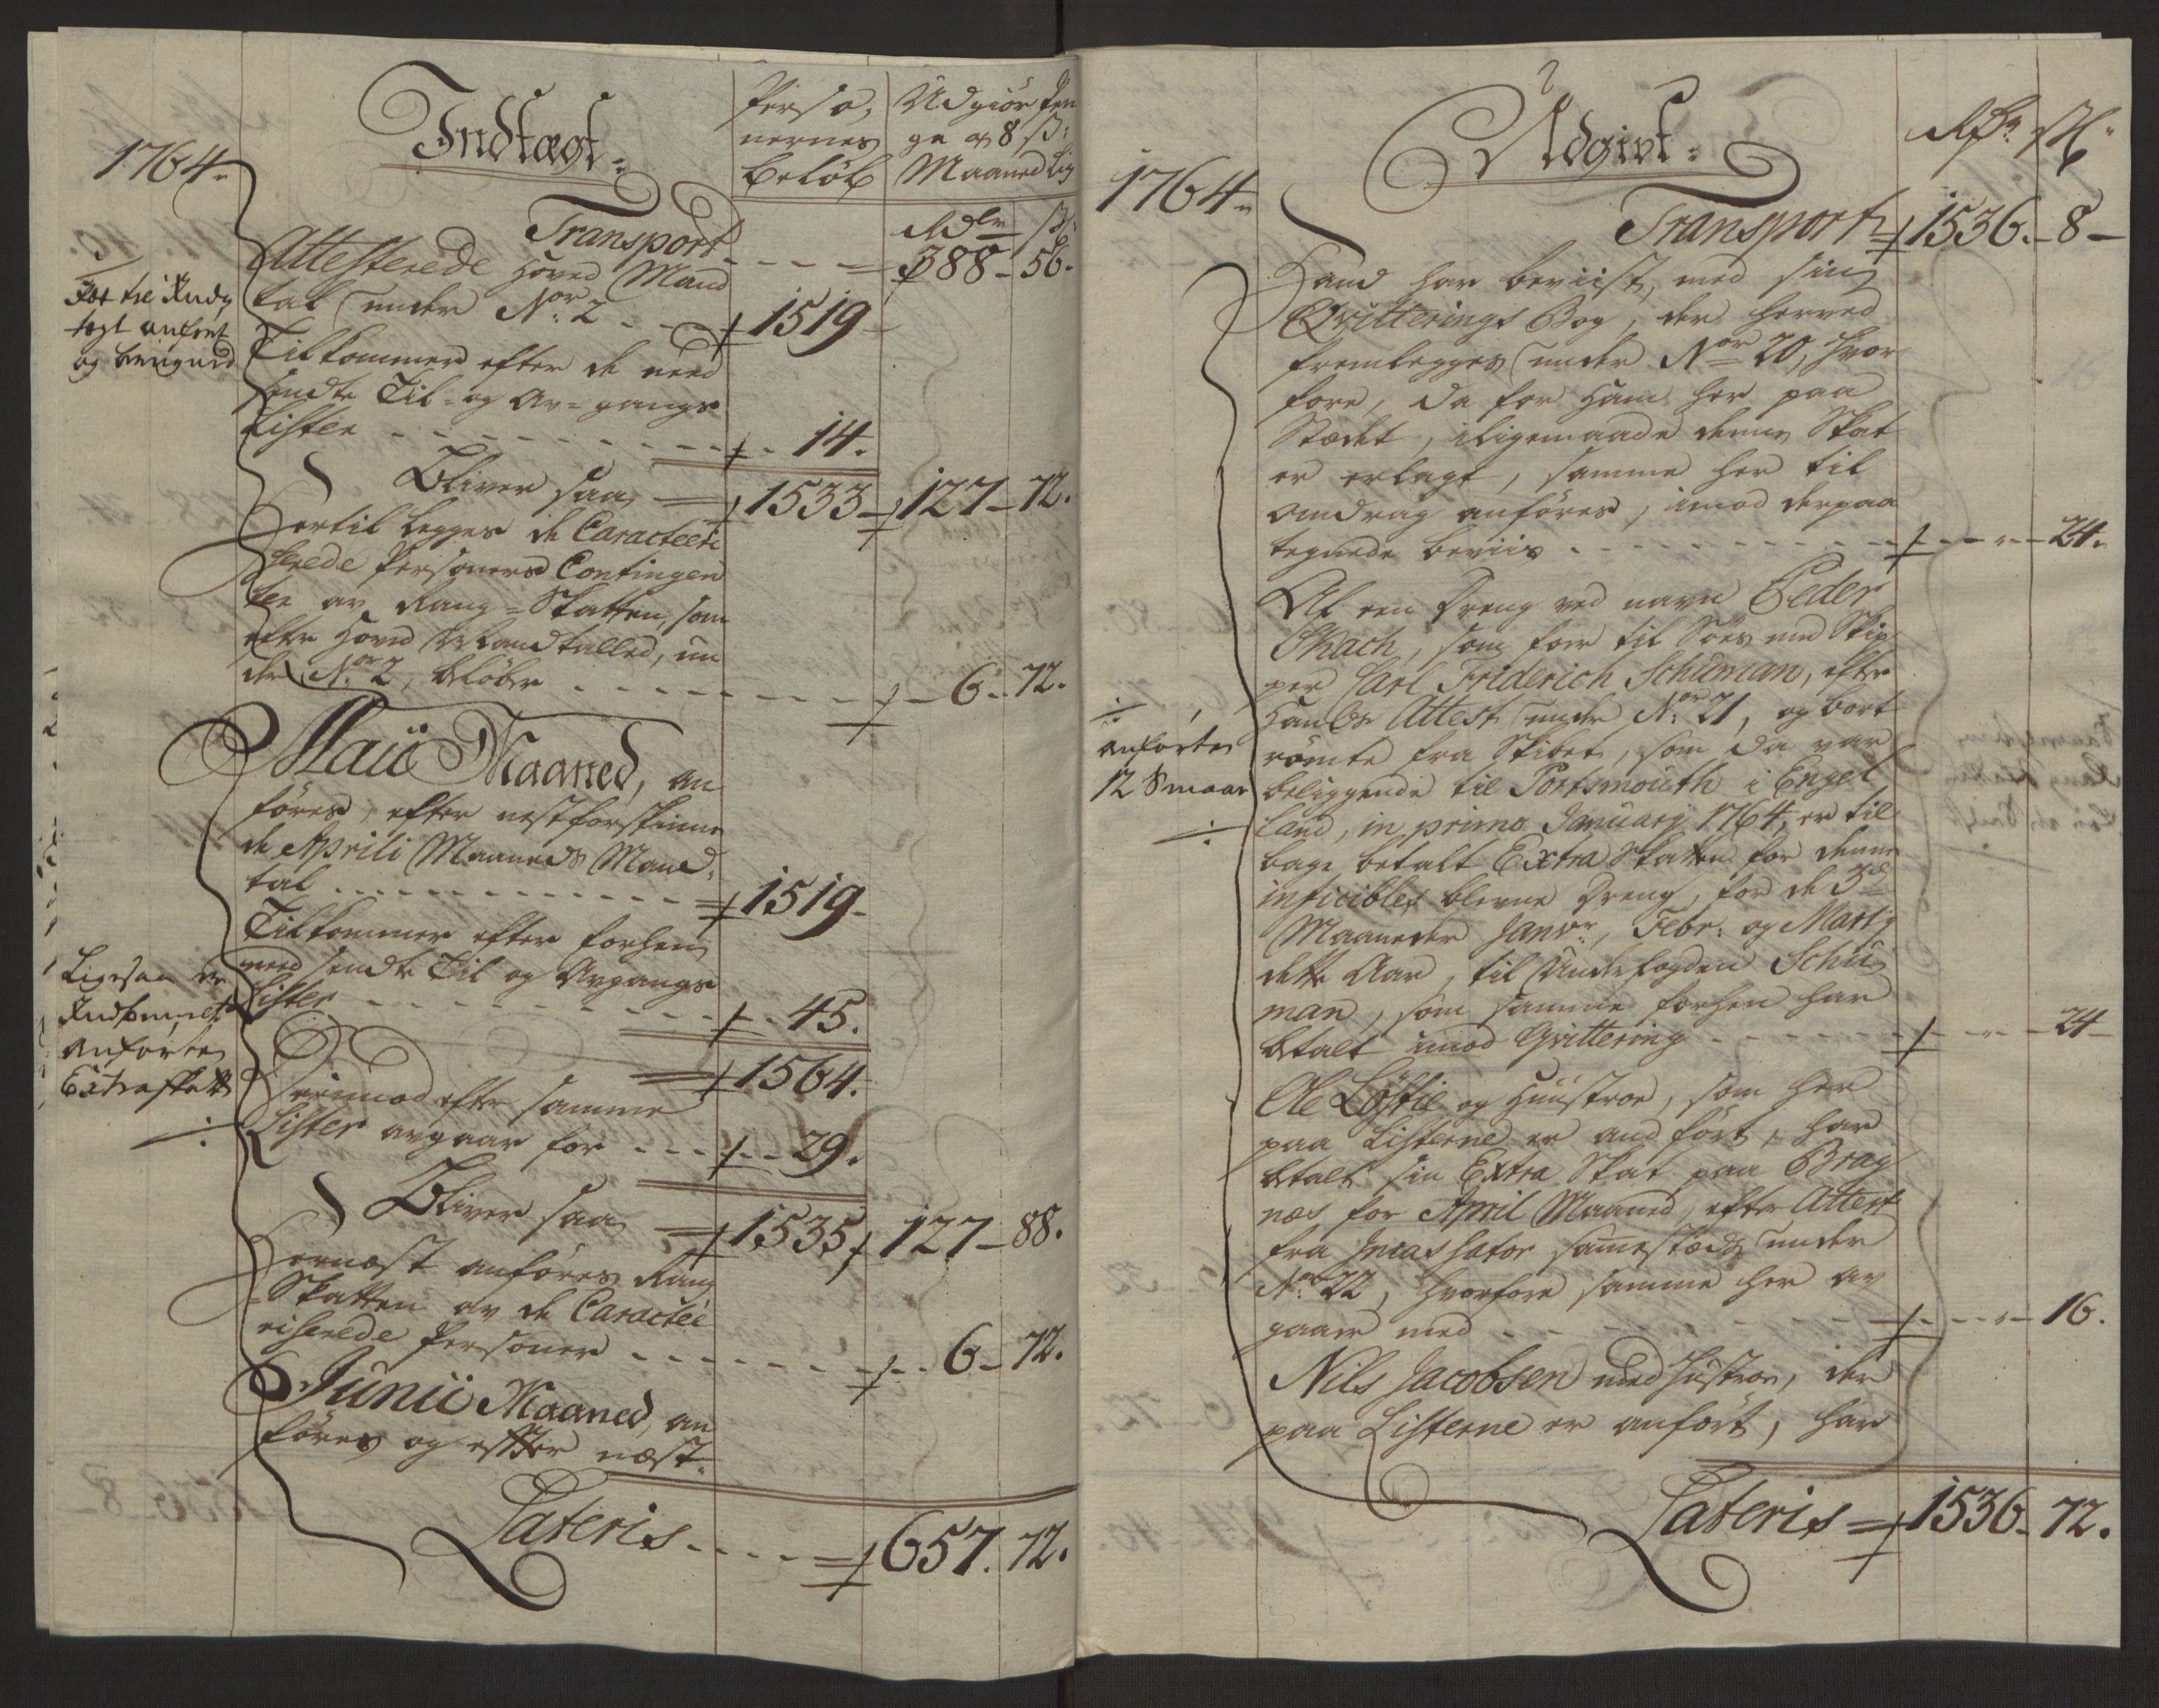 1764.
Indtægt.
Perso,
nernes
Beløb
Udgiør Pen
ge a 8 s:
Maanedlig
Transport
Rdlr s:
388 - 56.
Attesterede Hoved Mand
tal under Nor 2 - - 1519
Tilkommer efter de need
sendte Til- og Av-gangs
Lister - - - 14.
Bliver saa 1533 - 127 - 72.
Hertil legges de Caracteri
serede Personers Contingen
ter av Rang-Skatten, som
efter Hoved Mandtalled, un
der Nor 2, beløber - - - 6 - 72.
Maii Maaned, an
føres, efter nestforskinne
de Aprili Maaneds Mand,
tal - - - 1519
Tilkommer efter forhen
need sendte Til og Avgangs
Lister - - - 45.
1564.
Herimod efter samme
Lister avgaar for - - - 29.
Bliver saa 1535. 127 - 88.
Hernæst anføres Rang
Skatten av de Caractee
riserede Personer - - - 6 - 72.
Junii Maaned, an
føres og efter næst-
Lateris - - - 657. 72.
og
Ligesaa er
anførte
Extraskatt
1764.
Udgivt.
Rdr s.
Transport 1536 - 8 -
Hand har beviist, med sin
Qvitterings Bog, der herved
fremlegges under Nor 20, hvor
fore, da for ham her paa
Stædet, iligemaade denne Skat
er erlagt, samme her til
avdrag anføres, imod derpaa
tegnede beviis - - - 24.
Af een Dreng ved navn Peder
, som foer til Søes med Skip
per Carl Friderich Schuman, efter
Hands Attest under Nor 21, og bort
rømte fra Skibet, som da var
beliggende til Portsmouth i Engel
land, in primo Januarj 1764, er til
bage betalt Extra Skatten for denne
blevne Dreng, for de 3de
Maaneder Janvr, Febr: og Martj
dette Aar, til Underfogden Schu
man, som samme forhen har
betalt imod Qvittering - - - 24
Ole og Huustroe, som her
paa Listerne er and ført, har
betalt sin Extra Skat paa Brag
næs for April Maaned, efter Attest
fra samestæds under
No 22, hvorfore samme her av
gaaer med - - - 16.
Nils Jacobsen med Hustroe, der
paa Listerne er anført, har
Lateris 1536 - 72.
anførte
12 s